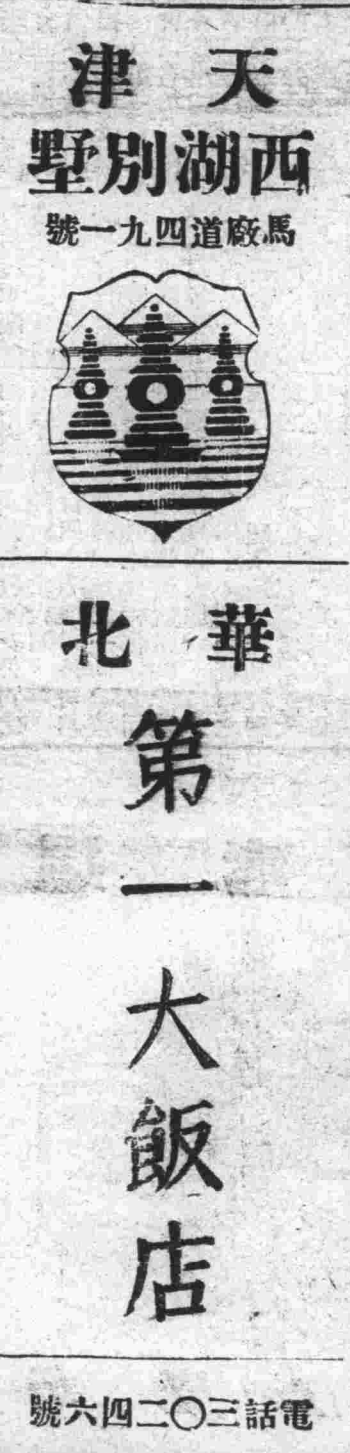 天津
西湖別墅
馬廠道四九一號
華北
第一大飯店
電話三〇二四六號